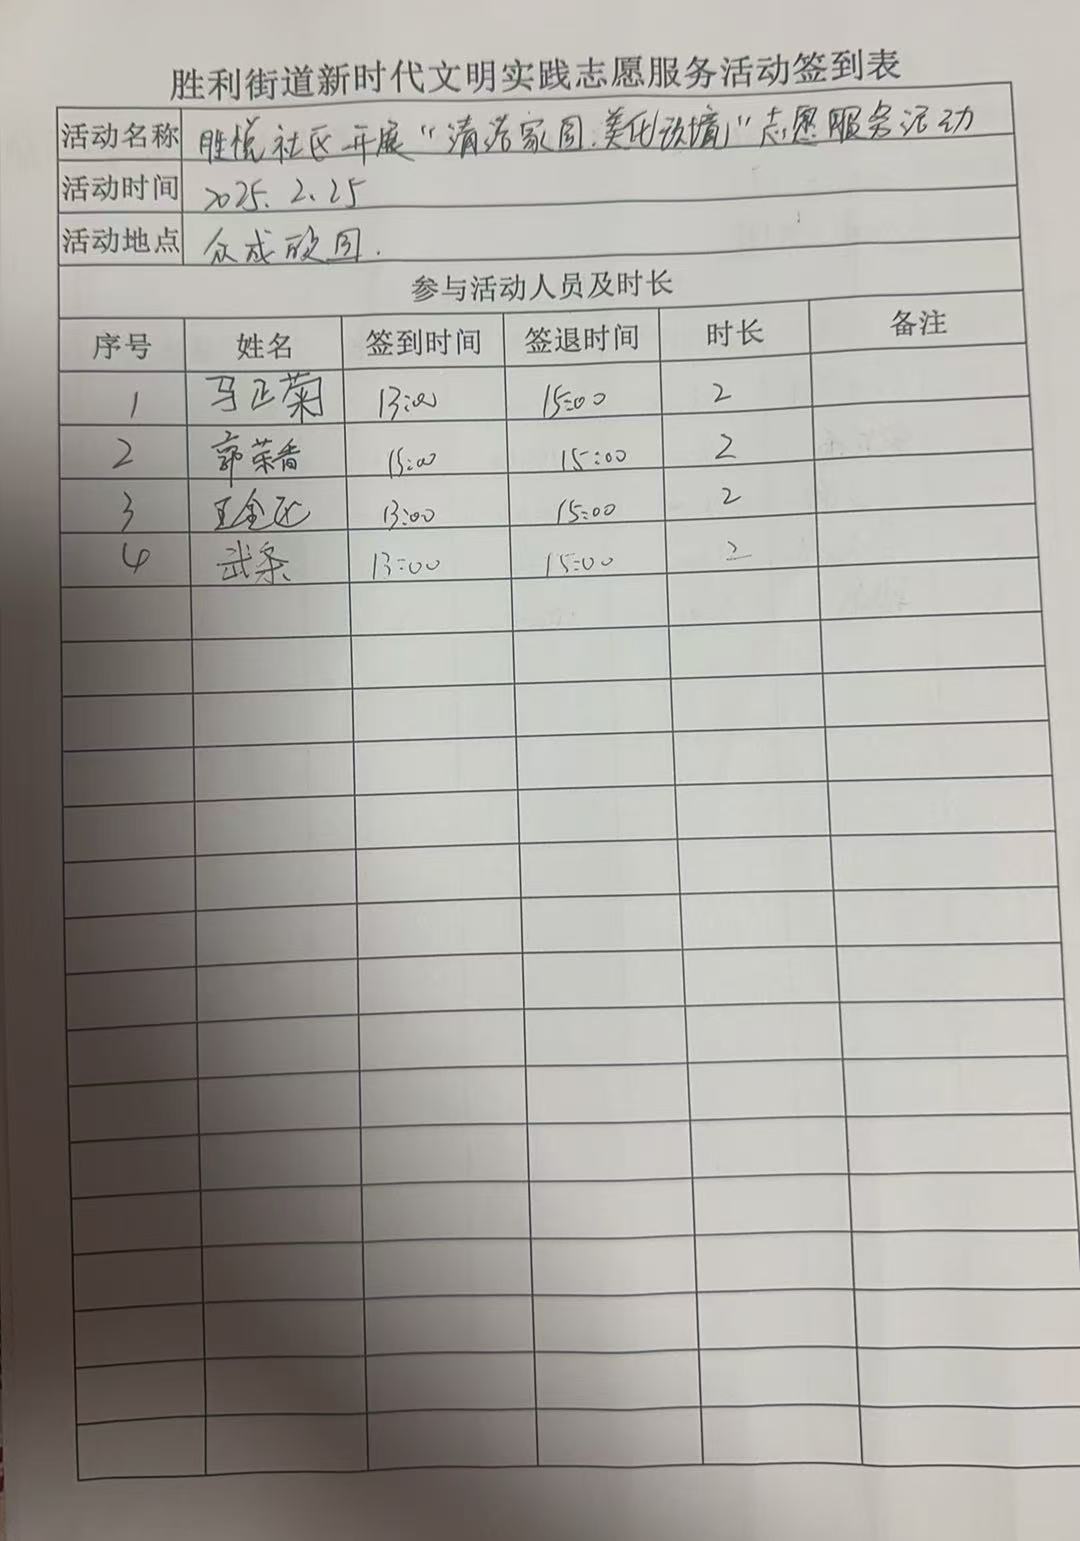 胜利街道新时代文明实践志愿服务活动签到表
活动名称 胜悦社区开展“清洁家园.美化环境”志愿服务活动
活动时间 2025.2.25
活动地点 众成欣园.
参与活动人员及时长
序号 姓名 签到时间 签退时间 时长 备注
1 马正菊 13:00 15:00 2
2 郭荣香 15:00 15:00 2
3 13:00 15:00 2
4 武条 13:00 15:00 2